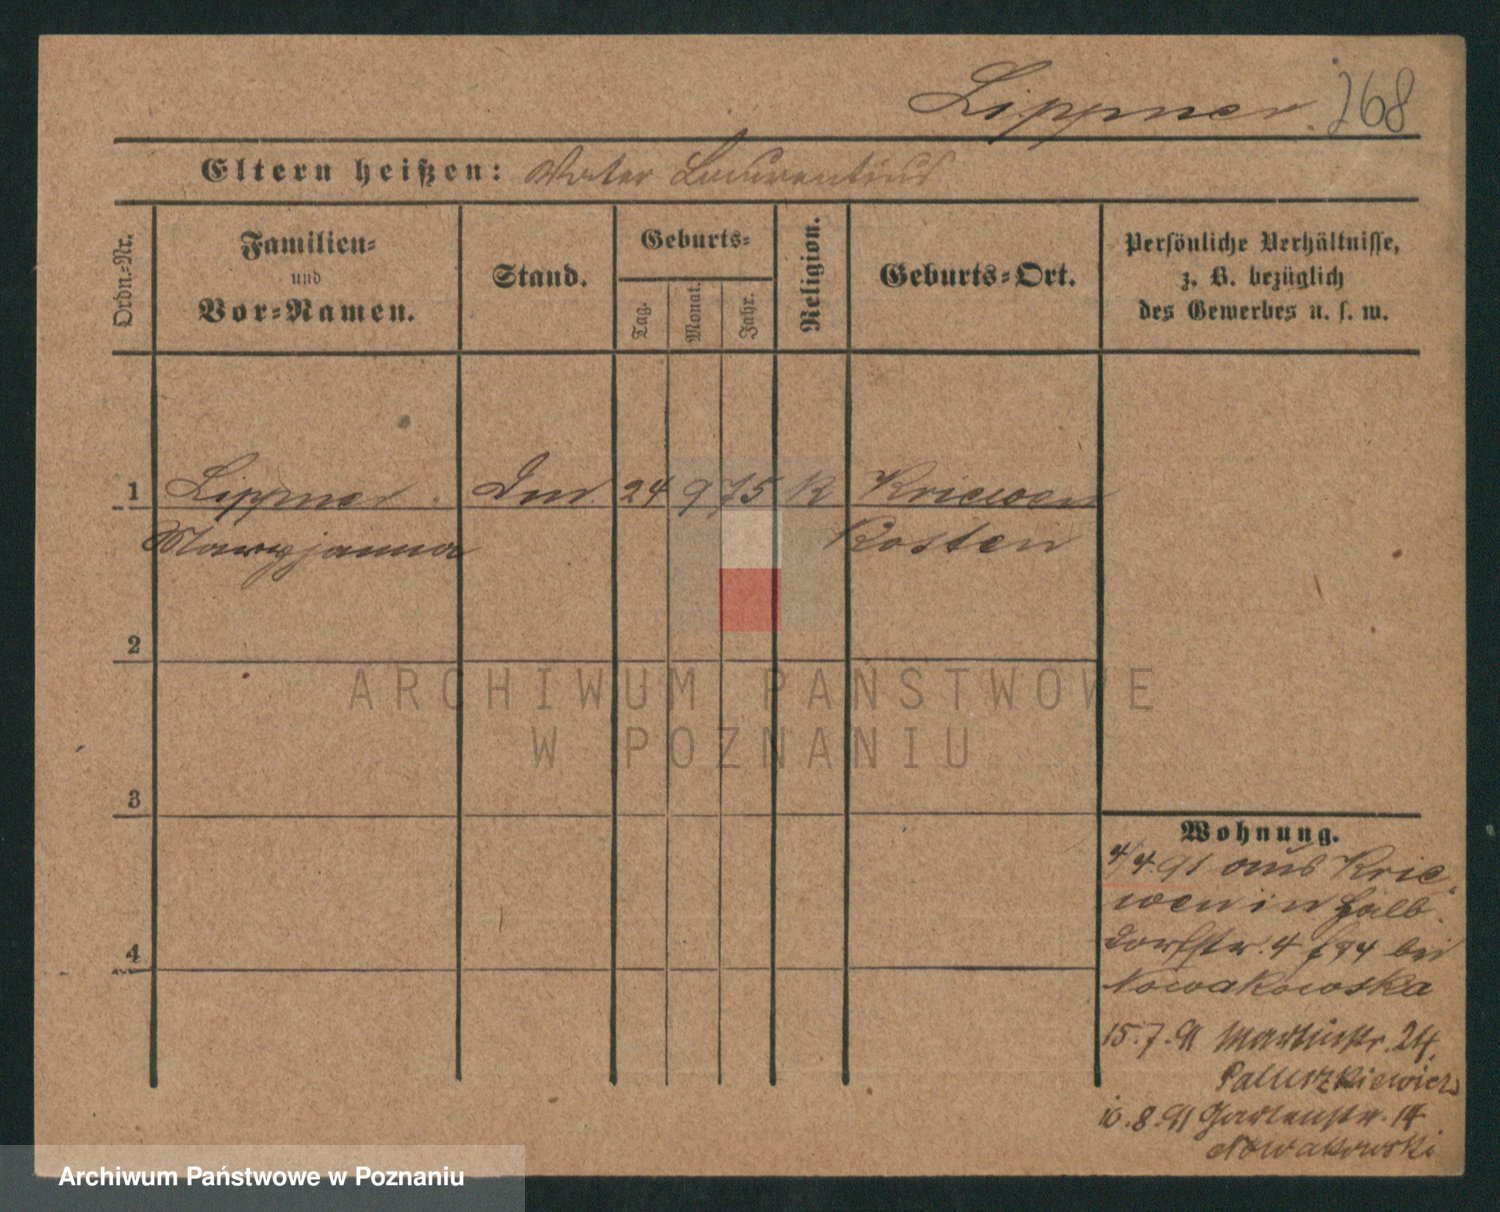 Lippner. 268
Eltern heißen: Vater Laurentius
Ordn.-Nr.
Familien-
und
Vor-Namen.
Stand.
Geburts-
Tag.
Monat.
Jahr.
Religion.
Geburts-Ort.
Persönliche Verhältnisse,
z. B. bezüglich
des Gewerbes u. s. w.
1 Lippner 24 9 75 K Kriewen
Maryjanna Kosten
2
3
4
Wohnung.
4/4 91 aus Krie-
wen in Halb-
dorfstr. 4 bei
Nowakowska
15.7.91 Martinstr. 24.
Paluszkiewicz
10.8.91 Gartenstr. 14
Nowakowski
ARCHIWUM PAŃSTWOWE
W POZNANIU
Archiwum Państwowe w Poznaniu